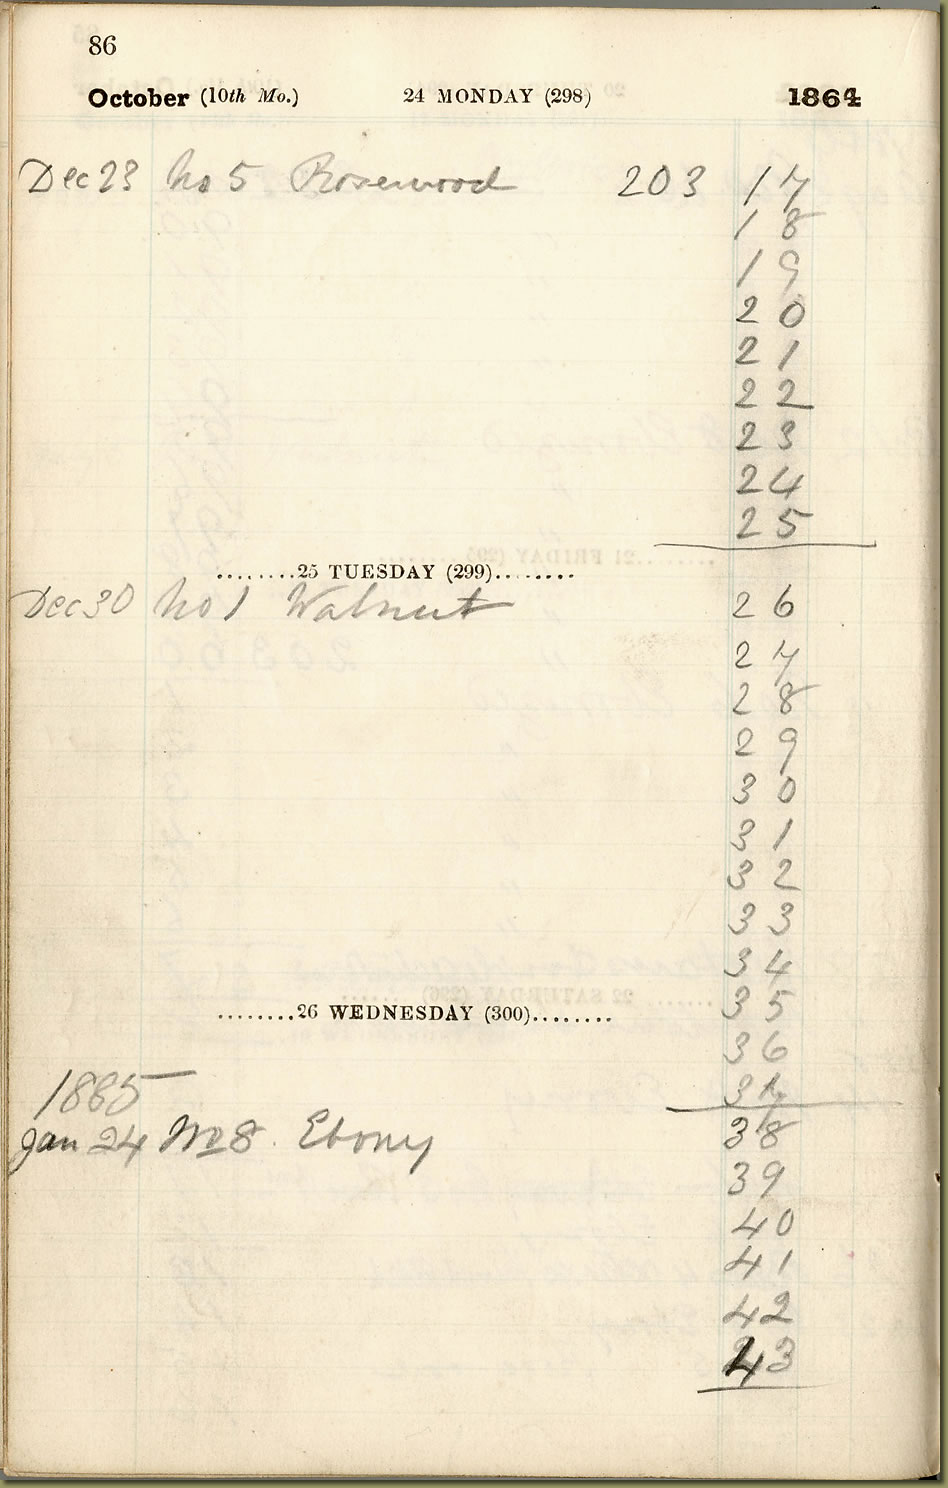 86
October (10th Mo.) 24 MONDAY (298) 1864
Dec 23 No 5 Rosewood 203 17
18
19
20
21
22
23
24
25
........25 TUESDAY (299)........
Dec 30 No 1 Walnut 26
27
28
29
30
31
32
33
34
35
........26 WEDNESDAY (300)........
36
1865 37
Jan 24 No 8 Ebony 38
39
40
41
42
43